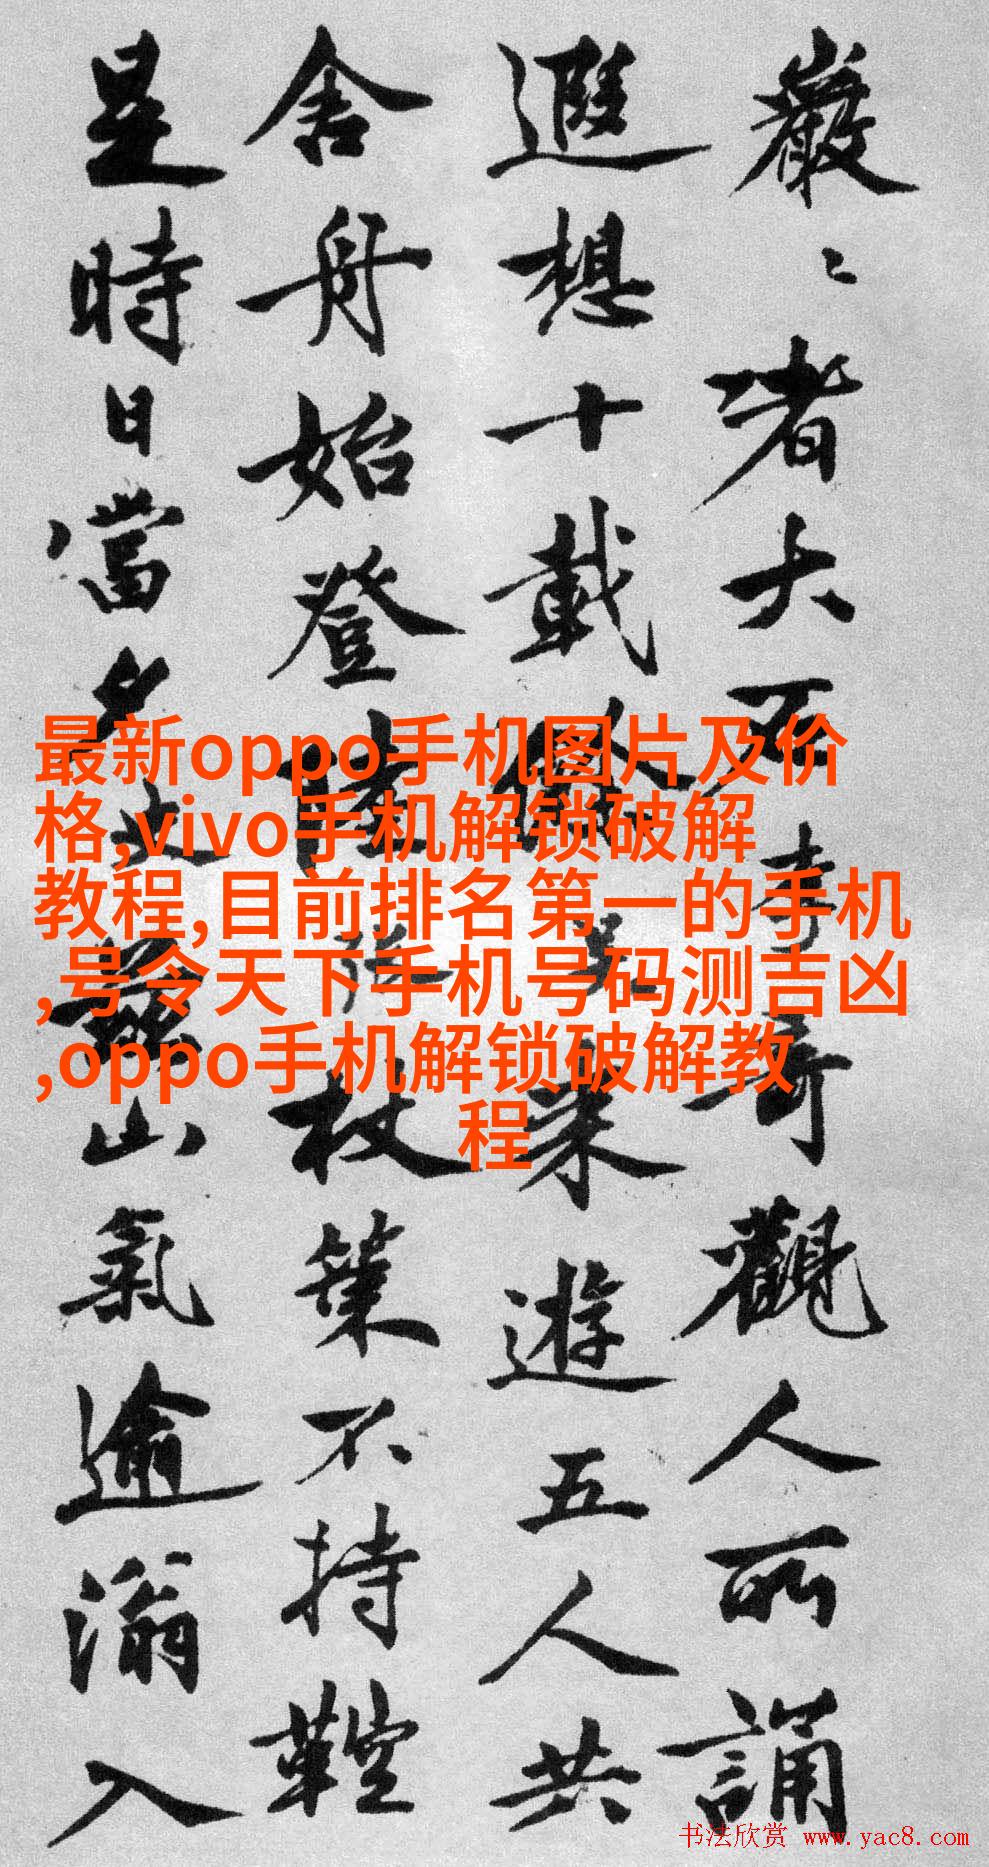 巖〻者大不幸哥觀人所誦
遐想十載餘果來遊五人共
舍舟始登陸杖策不持鞚
是時日當夕山氣逾滃入
最新oppo手机图片及价
格,vivo手机解锁破解
教程,目前排名第一的手机
,号令天下手机号码测吉凶
,oppo手机解锁破解教
程
书法欣赏 www.yac8.com